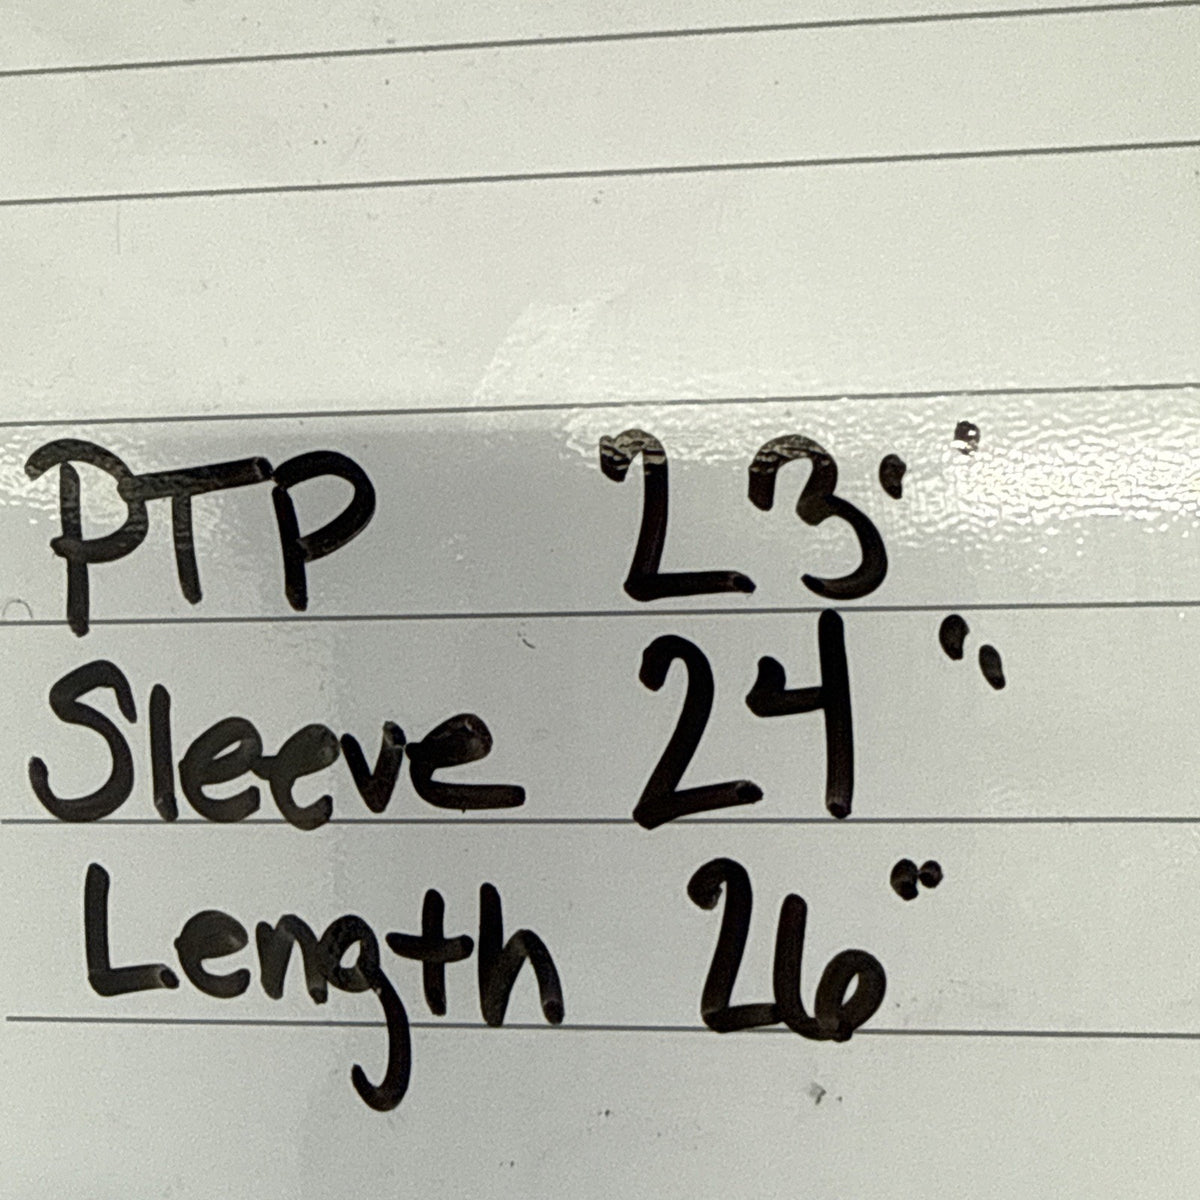 PTP 23"
Sleeve 24"
Length 26"